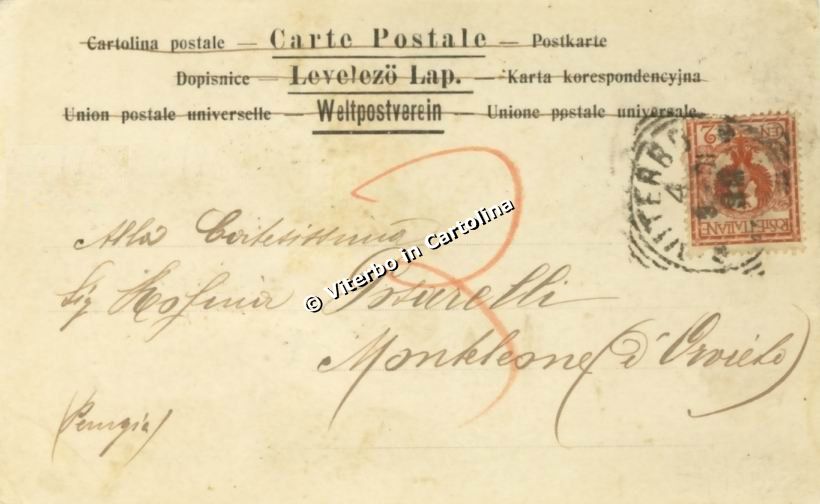 Cartolina postale — Carte Postale — Postkarte
Dopisnice — Levelező Lap. — Karta korespondencyjna
Union postale universelle — Weltpostverein — Unione postale universale
VITERBO
4
POSTE ITALIANE
2
3
Alla Cortesissima
Sig Rosina
Monteleone (d'Orvieto)
(Perugia)
© Viterbo in Cartolina